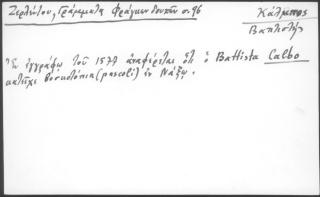 Ζερλέντου, Γράμματα Φράγκων δουκών σ. 96
Κάλμπος
Βαπτιστής
Ἐν ἐγγράφῳ τοῦ 1577 ἀναφέρεται ὅτι ὁ Battista Calbo
κατεῖχε βοσκοτόπια (pascoli) ἐν Νάξῳ.